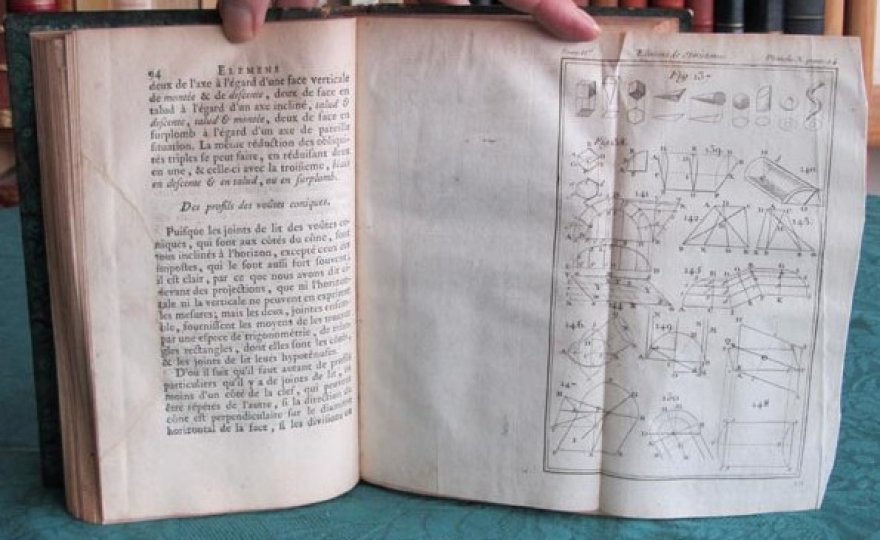 94 ELEMENS
deux de l'axe à l'égard d'une face verticale
de montée & de descente, deux de face en
talud à l'égard d'un axe incliné, talud &
descente, talud & montée, deux de face en
surplomb à l'égard d'un axe de pareille
situation. La même réduction des obliqui-
tés triples se peut faire, en réduisant deux
en une, & celle-ci avec la troisieme, biais
en descente & en talud, ou en surplomb.
Des profils des voûtes coniques.
Puisque les joints de lit des voûtes co-
niques, qui sont aux côtés du cône, sont
tous inclinés à l'horizon, excepté ceux des
impostes, qui le sont aussi fort souvent;
il est clair, par ce que nous avons dit ci-
devant des projections, que ni l'horizon-
tale ni la verticale ne peuvent en exprimer
les mesures; mais les deux, jointes ensem-
ble, fournissent les moyens de les trouver
par une espece de trigonométrie, de trian-
gles rectangles, dont elles sont les côtés,
& les joints de lit leurs hypoténuses.
D'où il suit qu'il faut autant de profils
particuliers qu'il y a de joints de lit, au
moins d'un côté de la clef, qui peuvent
être répétés de l'autre, si la direction du
cône est perpendiculaire sur le diametre
horizontal de la face, si les divisions en
Elémens de Planche X page 94
Fig 137
Fig 138
139
140
141
142
143
145
144
146
149
147
150
148